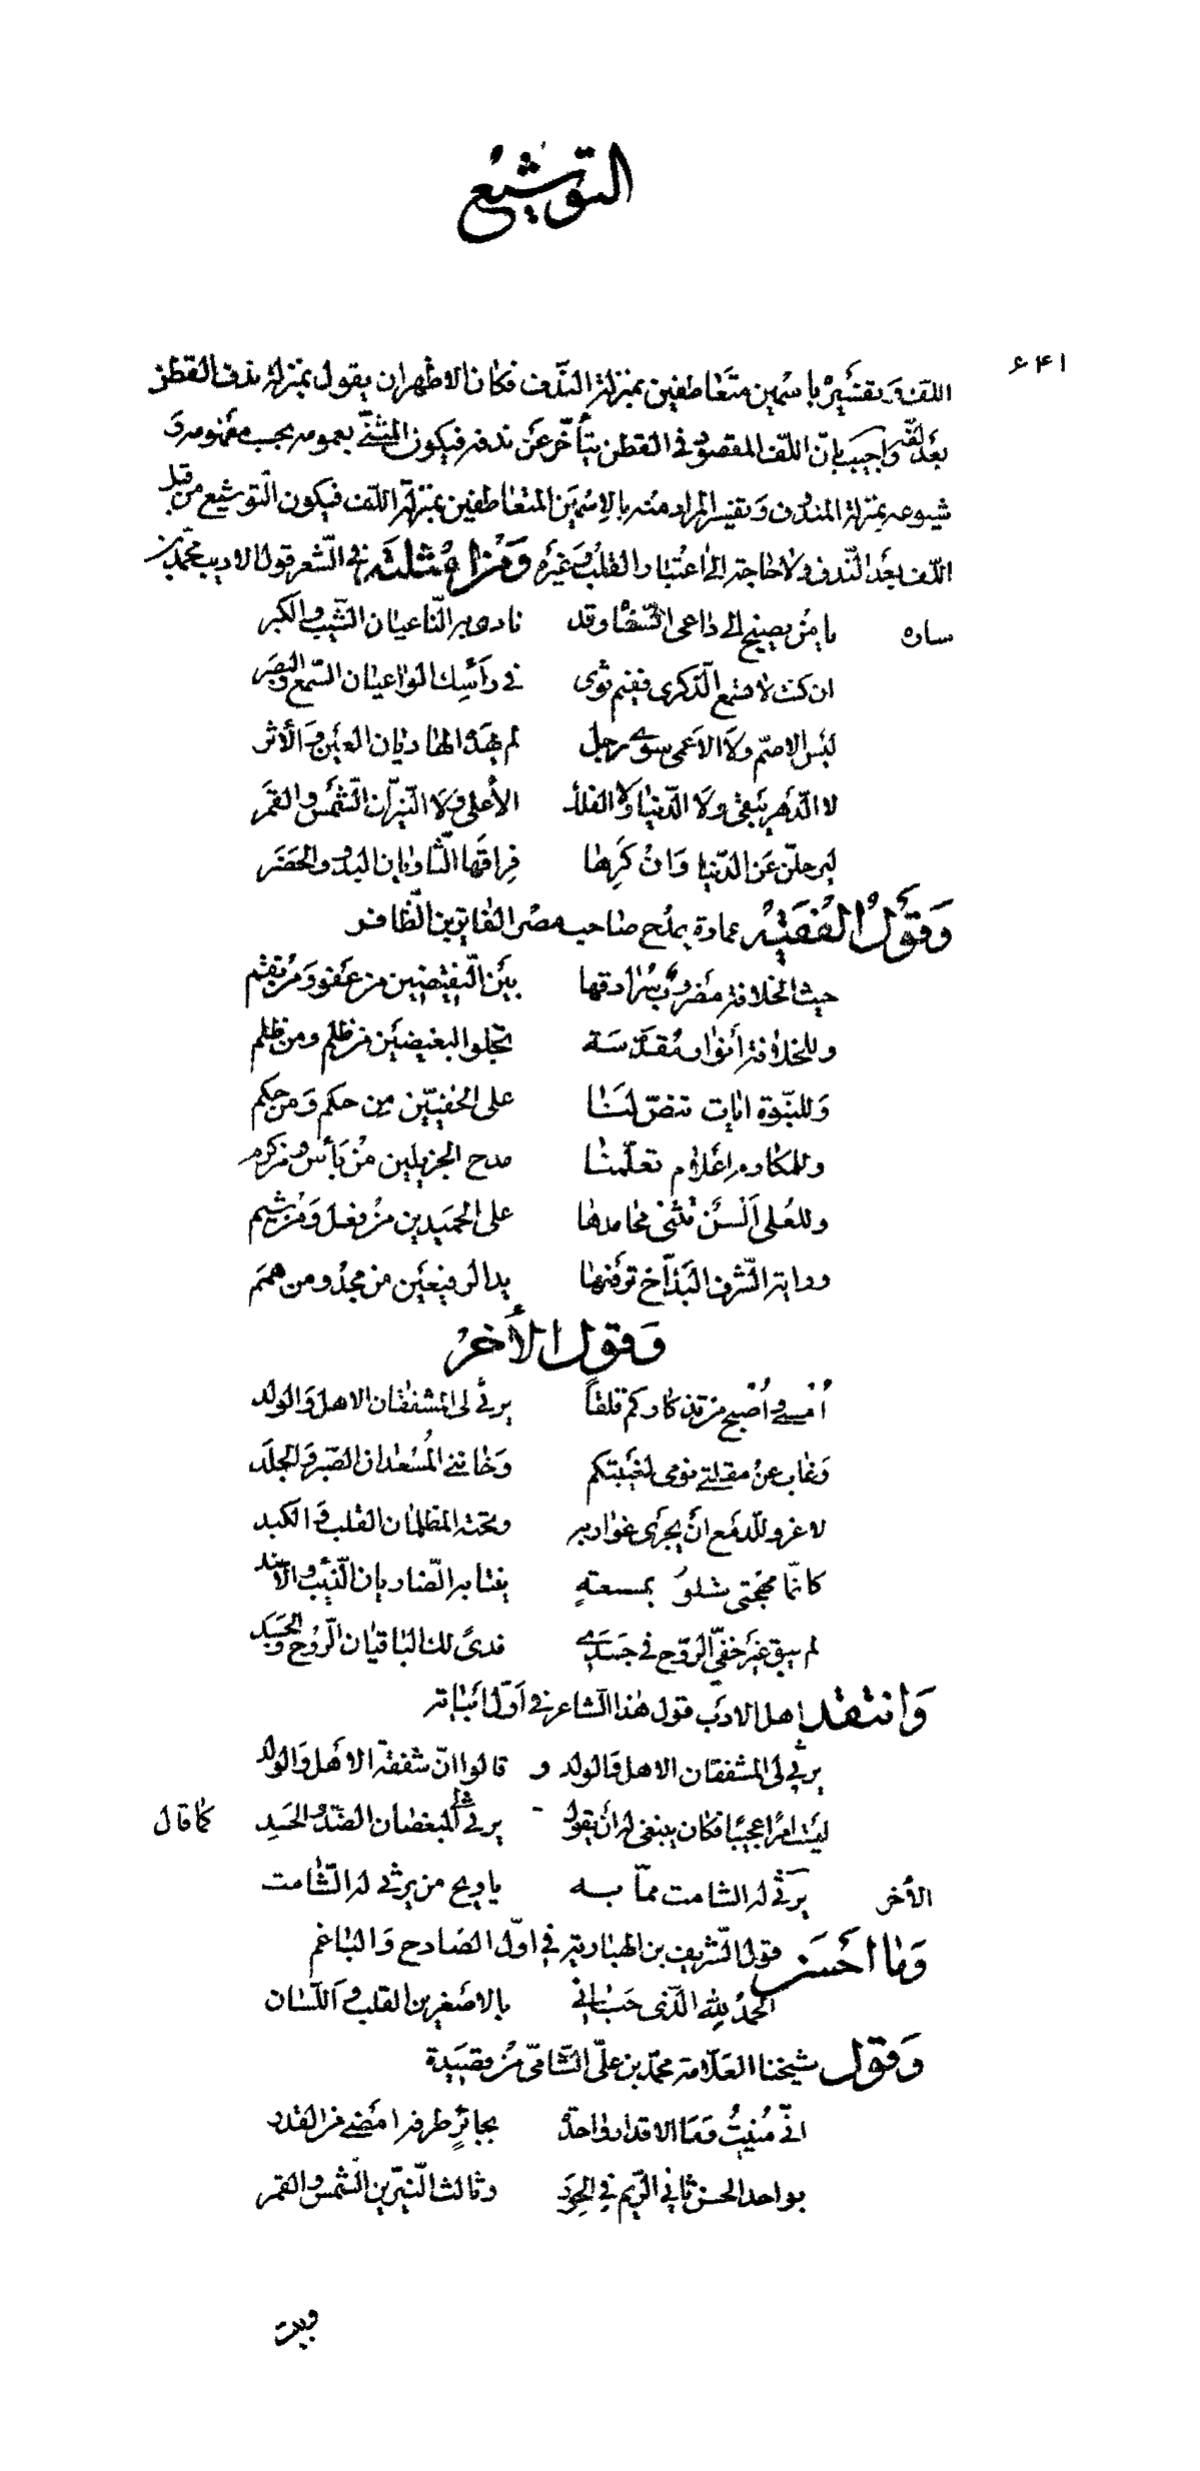 التوشيع
٦٤١
اللف وتفسيره باسمين متعاطفين بمنزلة الندف فكان الاظهر ان يقول بمنزلة ندف القطن
بعد لفه واجيب بان اللف المقصود في القطن يتأخر عن ندفه فيكون المثنى بعمومه بحسب مفهومه و
شيوعه بمنزلة المندوف وتفسير المراد منه بالاسمين المتعاطفين بمنزلة اللف فيكون التوشيع من قبل
اللف بعد الندف ولا حاجة الى اعتبار القلب وغيره ومن امثلته في الشعر قول الاديب محمد بن
ساره يا من يصيخ الى داعي الشقاء وقد نادى به الناعيان الشيب والكبر
ان كنت لا تسمع الذكرى ففيم ثوى في رأسك الواعيان السمع والبصر
ليس الاصم ولا الاعمى سوى رجل لم يهده الهاديان العين والأثر
لا الدهر يبقى ولا الدنيا ولا الفلك الأعلى ولا النيران الشمس والقمر
ليرحلن عن الدنيا وان كرها فراقها الثاويان البدو والحضر
وقول الفقيه عمارة يمدح صاحب مصر الفائز بن الظافر
حيث الخلافة مضروب سرادقها بين النقيضين من عفو ومن نقم
وللخلافة أنوار مقدسة تجلو البغيضين من ظلم ومن ظلم
وللنبوة ايات تنص لنا على الخفيين من حكم ومن حكم
وللمكارم اعلام تعلمنا مدح الجزيلين من بأس ومن كرم
وللعلى ألسن تثنى محامدها على الحميدين من فعل ومن شيم
وراية الشرف البذاخ ترفعها يد الرفيعين من مجد ومن همم
وقول الأخر
أمسى وأصبح من تذكاركم قلقاً يرثى لى المشفقان الاهل والولد
وغاب عن مقلتى نومى لغيبتكم وخاننى المسعدان الصبر والجلد
لا غرو للدمع ان يجرى غواربه وتحته المظلمان القلب والكبد
كانما مهجتى شلو بمسبعة ينتابه الضاريان الذئب والاسد
لم يبق غير خفى الروح في جسدى فدى لك الباقيان الروح والجسد
وانتقد اهل الادب قول هذا الشاعر في أول أبياته
يرثى لى المشفقان الاهل والولد و قالوا ان شفقة الاهل والولد
ليست امرا عجيبا فكان ينبغى له أن يقول يرثى لى المبغضان الضد والحسد كما قال
الأخر يرثى له الشامت مما به يا ويح من يرثى له الشامت
وما احسن قول الشريف بن الهبارية في اول الصادح والباغم
الحمد لله الذى حبانى بالاصغرين القلب واللسان
وقول شيخنا العلامة محمد بن على الشامى من قصيدة
انى منيت وما الاقدار واحدة بجائر طرفه امضى من القدر
بواحد الحسن ثانى الريم في الجيد وثالث النيرين الشمس والقمر